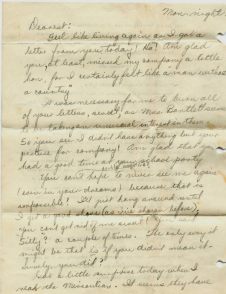 Mon-night
Dearest:
Feel like living again as I got a
letter from you today! Ha! Am glad
you, at least, missed my company a little
for I certainly felt like a man without
a country"
It was necessary for me to burn all
of your letters, since, as Mrs.
interest in them.
So you see I didn't have anything but your
picture for company! Am glad that you
had a good time at your party
You can't hope to never see me again
(even in your dreams) because that is
impossible! I'll just hang around until
I get a good
you can't get rid of me
a couple of times. The only way it
might be that is if you didn't want it.
Surely, you did?
Had a little surprise today when I
It seems they have